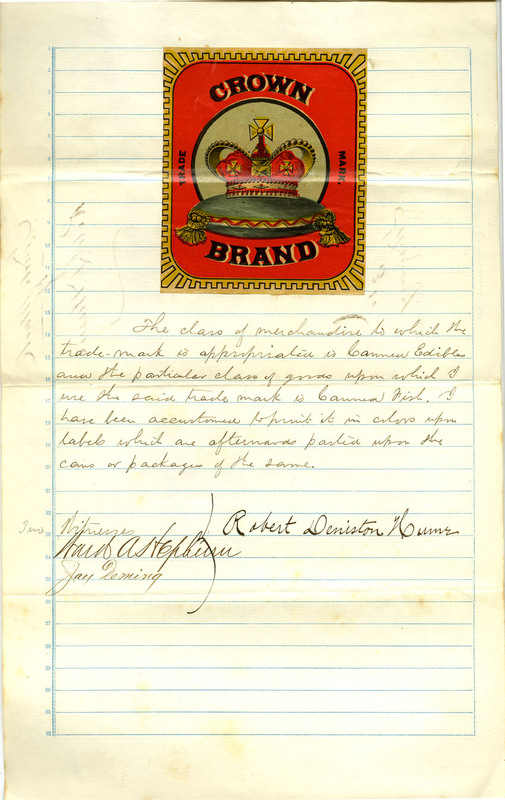 CROWN
TRADE MARK.
BRAND
The class of merchandise to which the
trade-mark is appropriated is Canned Edibles
and the particular class of goods upon which I
use the said trade mark is Canned Fish. I
have been accustomed to print it in colors upon
labels which are afterwards pasted upon the
cans or packages of the same.
Two Witnesses
Robert Deniston Hume
Ward A Hepburn
Jay Deming